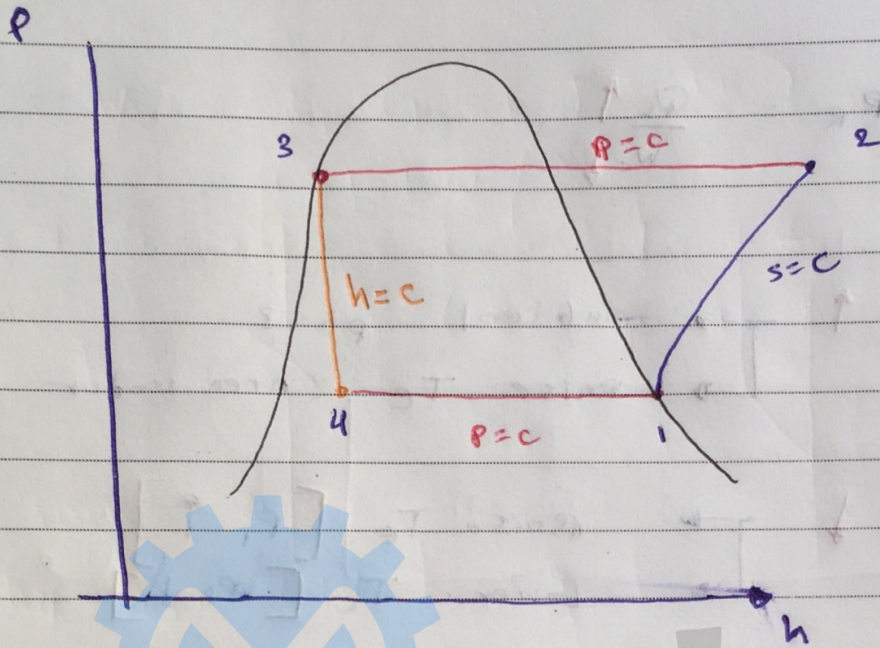 P
3
P = C
2
S = C
h = C
4
P = C
1
h